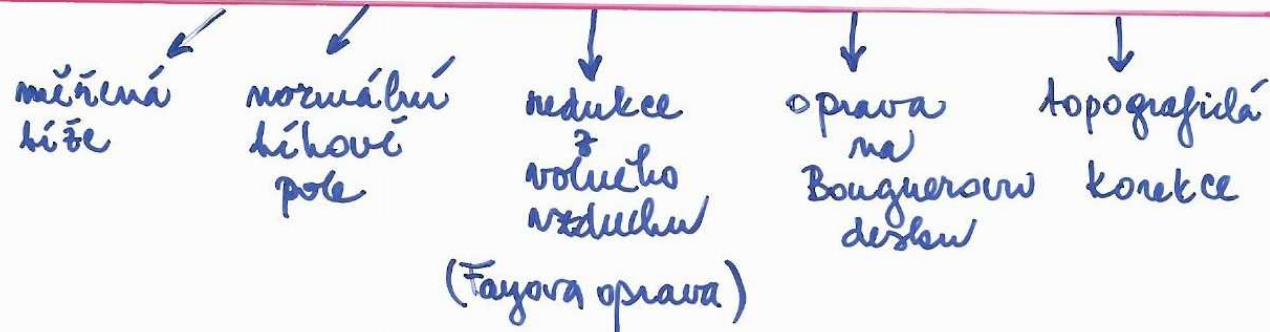 měřená
tíže
normální
tíhové
pole
redukce
z
volného
vzduchu
(Fayova oprava)
oprava
na
Bouguerovu
desku
topografická
korekce